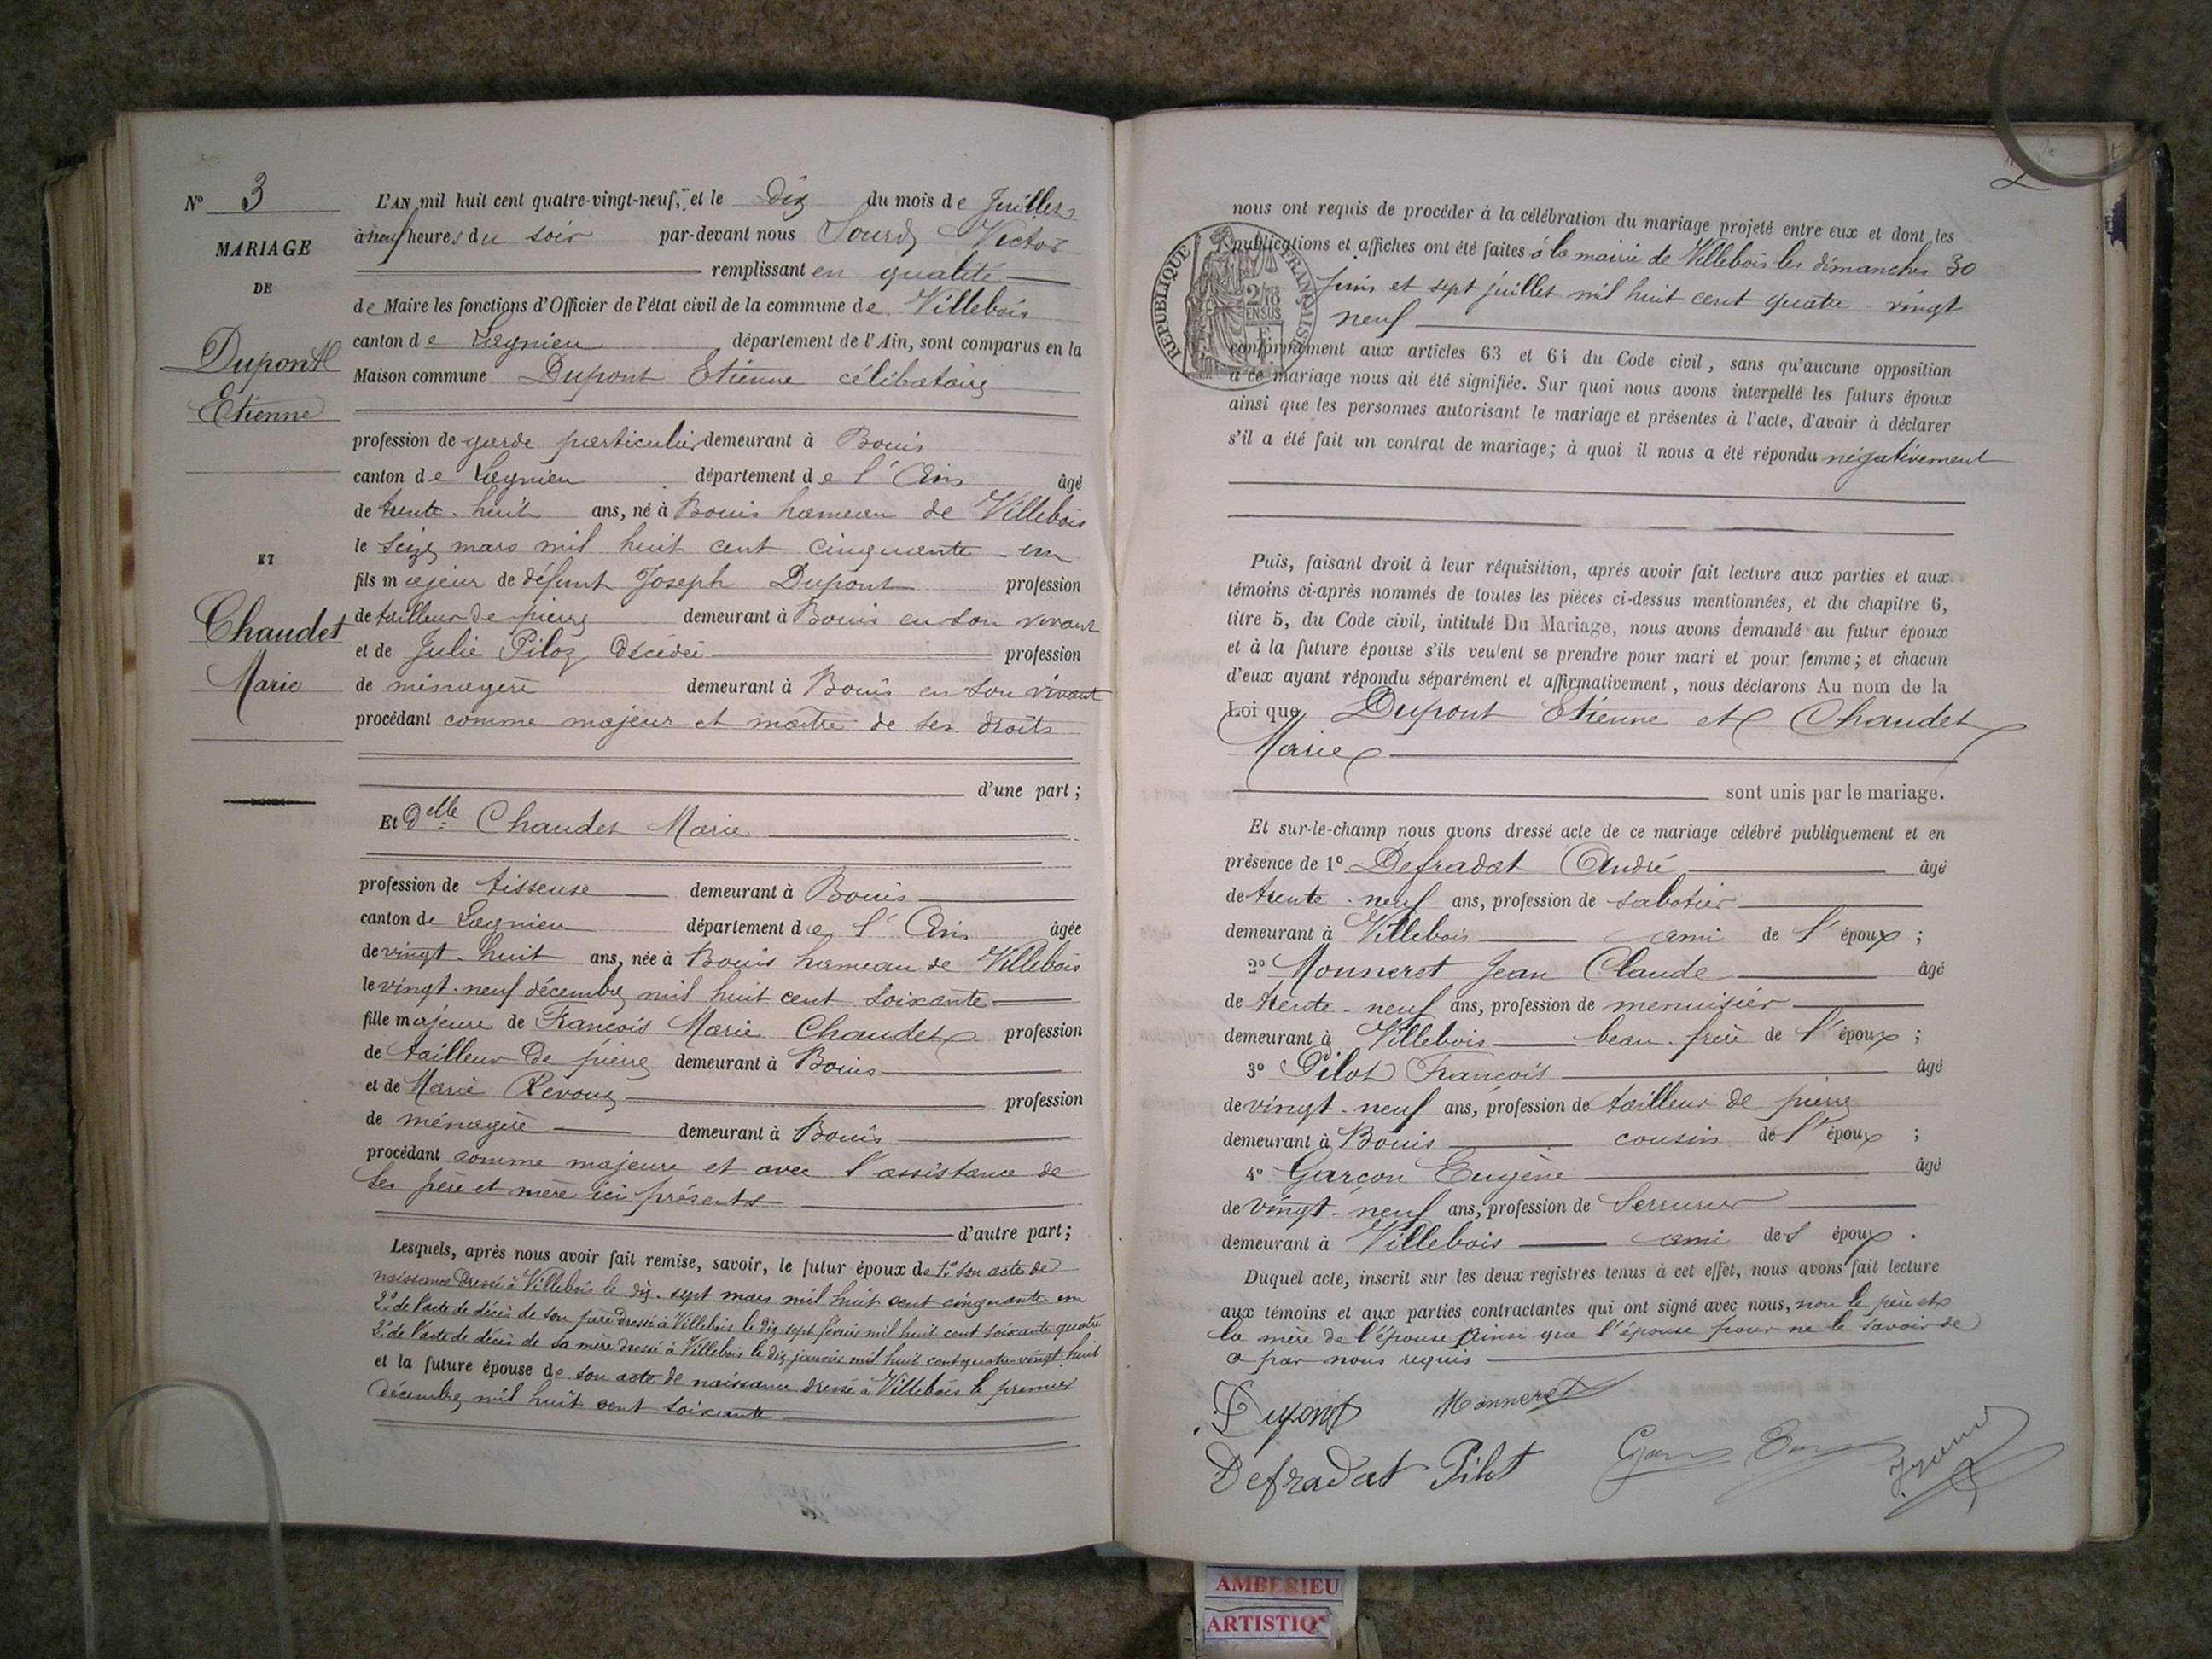 N° 3
MARIAGE
DE
Dupont
Etienne
ET
Chaudet
Marie
L'AN mil huit cent quatre-vingt-neuf, et le Dix du mois de Juillet
à neuf heures du soir par-devant nous Sourd Victor
remplissant en qualité
de Maire les fonctions d'Officier de l'état civil de la commune de Villebois
canton de Lagnieu, département de l'Ain, sont comparus en la
Maison commune Dupont Etienne célibataire
profession de garde particulier demeurant à Bouis
canton de Lagnieu département de l'Ain âgé
de trente-huit ans, né à Bouis hameau de Villebois
le seize mars mil huit cent cinquante-un
fils majeur de défunt Joseph Dupont profession
de tailleur de pierre demeurant à Bouis en son vivant
et de Julie Piloz Décédée profession
de ménagère demeurant à Bouis en son vivant
procédant comme majeur et maître de ses droits
d'une part ;
Et Delle Chaudet Marie
profession de tisseuse demeurant à Bouis
canton de Lagnieu département de l'Ain âgée
de vingt-huit ans, née à Bouis hameau de Villebois
le vingt-neuf décembre mil huit cent soixante
fille majeure de François Marie Chaudet profession
de tailleur de pierre demeurant à Bouis
et de Marie Revoux profession
de ménagère demeurant à Bouis
procédant comme majeure et avec l'assistance de
ses père et mère ici présents
d'autre part ;
Lesquels, après nous avoir fait remise, savoir, le futur époux de 1° son acte de
naissance dressé à Villebois le dix-sept mars mil huit cent cinquante un
2° de l'acte de décès de son père dressé à Villebois le dix sept février mil huit cent soixante quatre
2° de l'acte de décès de sa mère dressé à Villebois le dix janvier mil huit cent quatre-vingt-huit
et la future épouse de son acte de naissance dressé à Villebois le premier
décembre mil huit cent soixante
nous ont requis de procéder à la célébration du mariage projeté entre eux et dont les
publications et affiches ont été faites à la mairie de Villebois les dimanches 30
juin et sept juillet mil huit cent quatre-vingt
neuf
REPUBLIQUE FRANÇAISE
conformément aux articles 63 et 64 du Code civil, sans qu'aucune opposition
à ce mariage nous ait été signifiée. Sur quoi nous avons interpellé les futurs époux
ainsi que les personnes autorisant le mariage et présentes à l'acte, d'avoir à déclarer
s'il a été fait un contrat de mariage; à quoi il nous a été répondu négativement
Puis, faisant droit à leur réquisition, après avoir fait lecture aux parties et aux
témoins ci-après nommés de toutes les pièces ci-dessus mentionnées, et du chapitre 6,
titre 5, du Code civil, intitulé Du Mariage, nous avons demandé au futur époux
et à la future épouse s'ils veulent se prendre pour mari et pour femme; et chacun
d'eux ayant répondu séparément et affirmativement, nous déclarons Au nom de la
Loi que Dupont Etienne et Chaudet
Marie
sont unis par le mariage.
Et sur-le-champ nous avons dressé acte de ce mariage célébré publiquement et en
présence de 1° Défradat André âgé
de trente-neuf ans, profession de sabotier
demeurant à Villebois ami de l'époux ;
2° Monneret Jean Claude âgé
de trente-neuf ans, profession de menuisier
demeurant à Villebois beau-frère de l'époux ;
3° Pilot François âgé
de vingt-neuf ans, profession de tailleur de pierre
demeurant à Bouis cousin de l'époux ;
4° Garçon Eugène âgé
de vingt-neuf ans, profession de Serrurier
demeurant à Villebois ami de l'époux.
Duquel acte, inscrit sur les deux registres tenus à cet effet, nous avons fait lecture
aux témoins et aux parties contractantes qui ont signé avec nous, non le père et
la mère de l'épouse ainsi que l'épouse pour ne le savoir de
ce par nous requis
Dupont Monneret
Defradat Pilot
AMBERIEU
ARTISTIQ